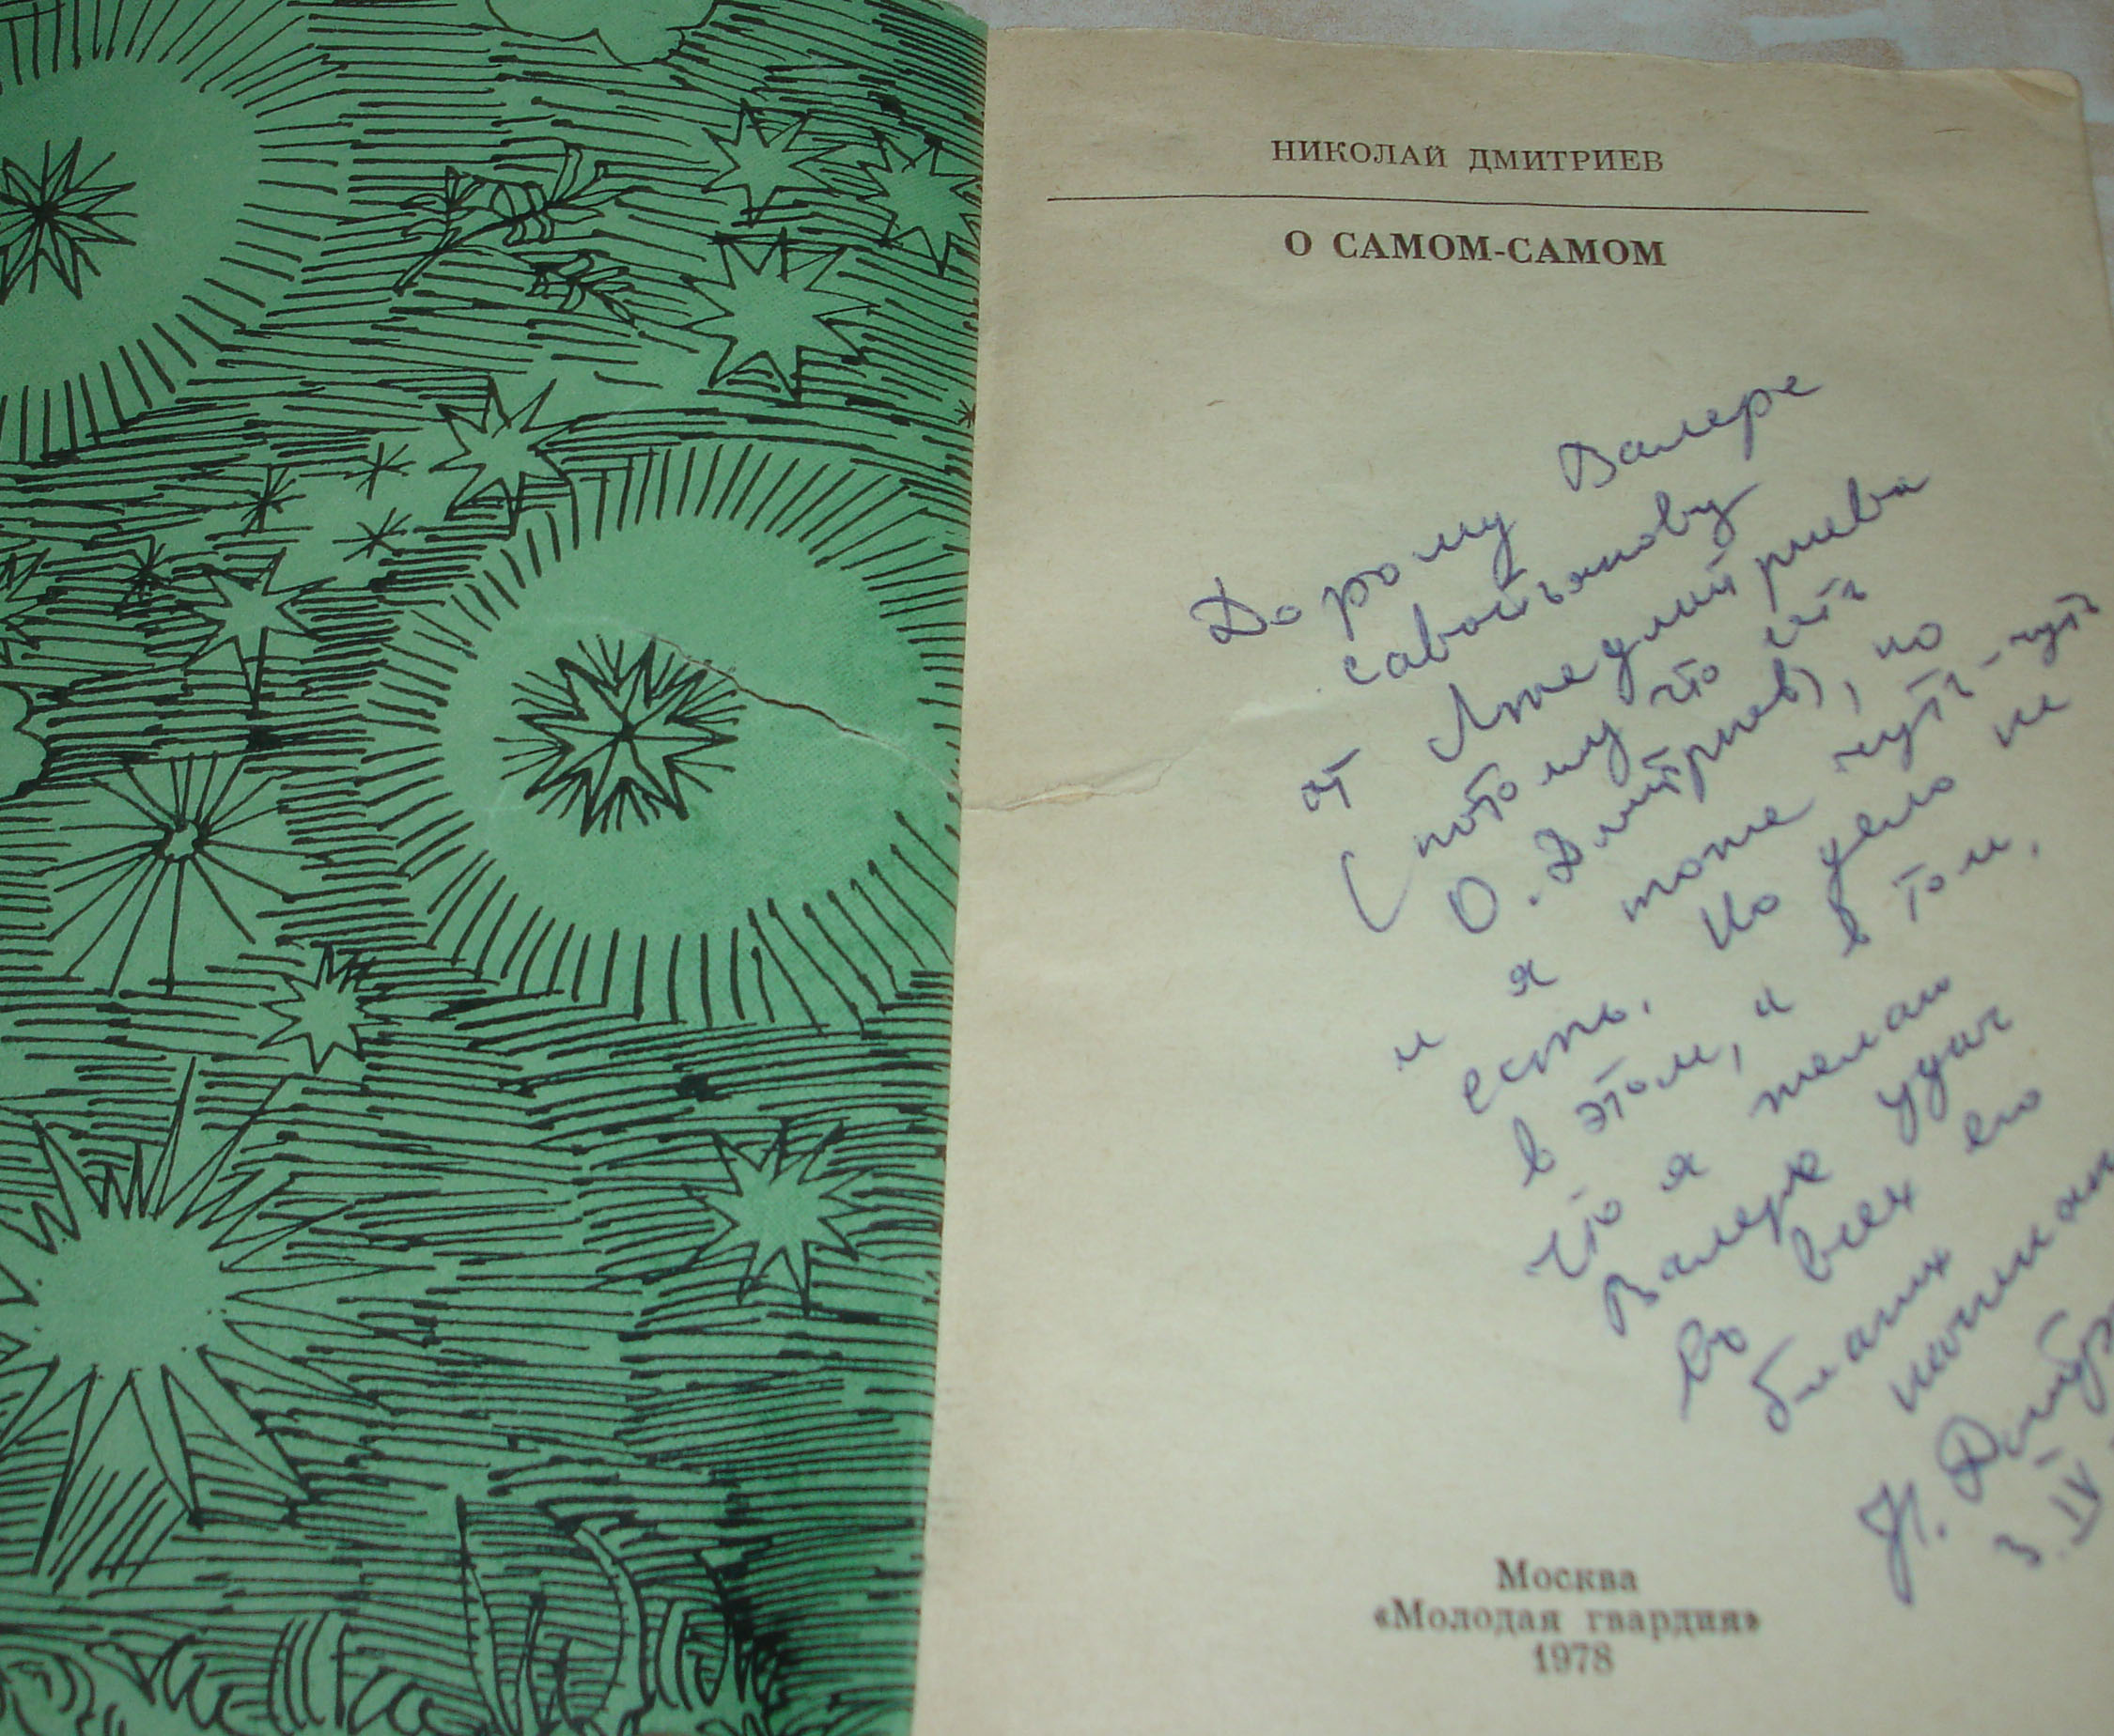 НИКОЛАЙ ДМИТРИЕВ
О САМОМ-САМОМ
Дорому Валере
Савостьянову
от Лжедмитриева
(потому что есть
О. Дмитриев), но
и я тоже чуть-чуть
есть. Но дело не
в этом, а в том,
что я желаю
Валере удач
во всех его
благих
начинан
Н. Дмитр
3. IV
Москва
«Молодая гвардия»
1978